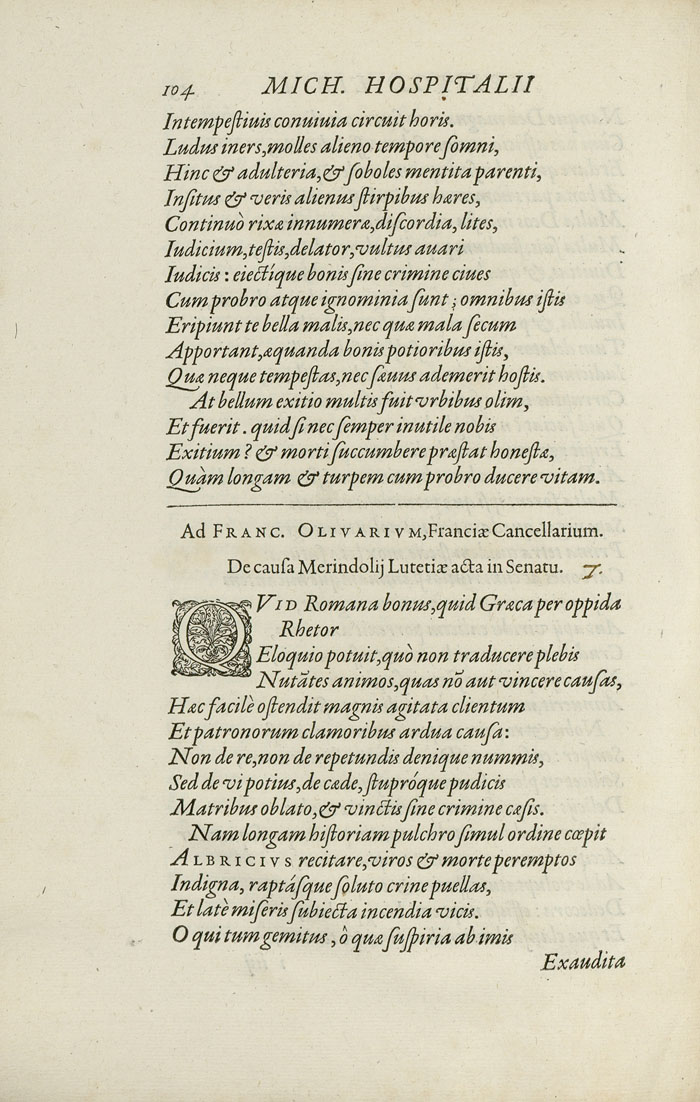 104 MICH. HOSPITALII
Intempeſtiuis conuiuia circuit horis.
Ludus iners, molles alieno tempore ſomni,
Hinc & adulteria, & ſoboles mentita parenti,
Inſitus & veris alienus ſtirpibus hæres,
Continuò rixæ innumeræ, diſcordia, lites,
Iudicium, teſtis, delator, vultus auari
Iudicis : eiectíque bonis ſine crimine ciues
Cum probro atque ignominia ſunt ; omnibus iſtis
Eripiunt te bella malis, nec quæ mala ſecum
Apportant, æquanda bonis potioribus iſtis,
Quæ neque tempeſtas, nec ſæuus ademerit hoſtis.
At bellum exitio multis fuit vrbibus olim,
Et fuerit . quid ſi nec ſemper inutile nobis
Exitium ? & morti ſuccumbere præſtat honeſtæ,
Quàm longam & turpem cum probro ducere vitam.
Ad FRANC. OLIVARIVM, Franciæ Cancellarium.
De cauſa Merindolij Lutetiæ acta in Senatu. 7.
QVID Romana bonus, quid Græca per oppida
Rhetor
Eloquio potuit, quò non traducere plebis
Nutãtes animos, quas nõ aut vincere cauſas,
Hæc facilè oſtendit magnis agitata clientum
Et patronorum clamoribus ardua cauſa:
Non de re, non de repetundis denique nummis,
Sed de vi potius, de cæde, ſtupróque pudicis
Matribus oblato, & vinctis ſine crimine cæſis.
Nam longam hiſtoriam pulchro ſimul ordine cœpit
ALBRICIVS recitare, viros & morte peremptos
Indigna, raptáſque ſoluto crine puellas,
Et latè miſeris ſubiecta incendia vicis.
O qui tum gemitus, ô quæ ſuſpiria ab imis
Exaudita